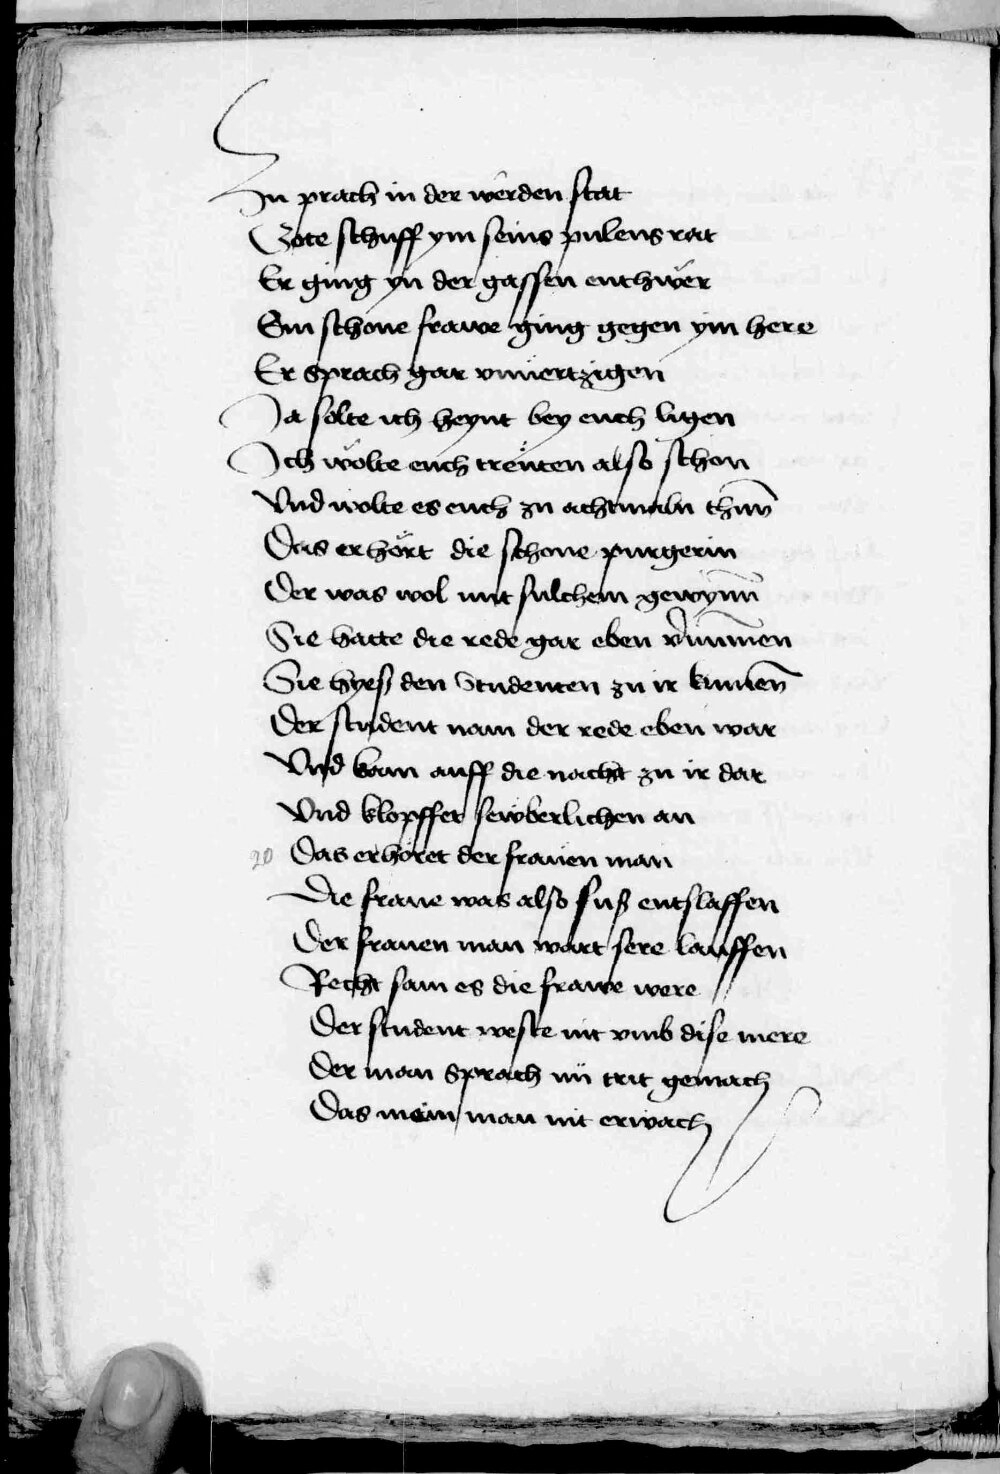 Zu prach in der werden stat
Gote schuff ym seins pulens rat
Er ging yn der gassen enthwer
Ein schone frawe ging gegen ym here
Er sprach gar vnuertzigen
Ja solte ich heynt bey euch ligen
Ich wolte euch treuten also schon
Vnd wolte es euch zu achtmaln thun̄
Das erhort die schone purgerin
Der was wol mit sulchem gewyn̄n
Sie hatte die rede gar eben
Sie hyeß den Studenten zu ir kumen̄
Der student nam der rede eben war
Vnd kam auff die nacht zu ir dar
Vnd klopffet sewberlichen an
20 Das erhoret der frauen man
Die fraue was also suß entslaffen
Der frauen man wart sere lauffen
Recht sam es die frawe were
Der student weste nit vmb dise mere
Der man sprach nu trit gemach
Das mein man nit erwach